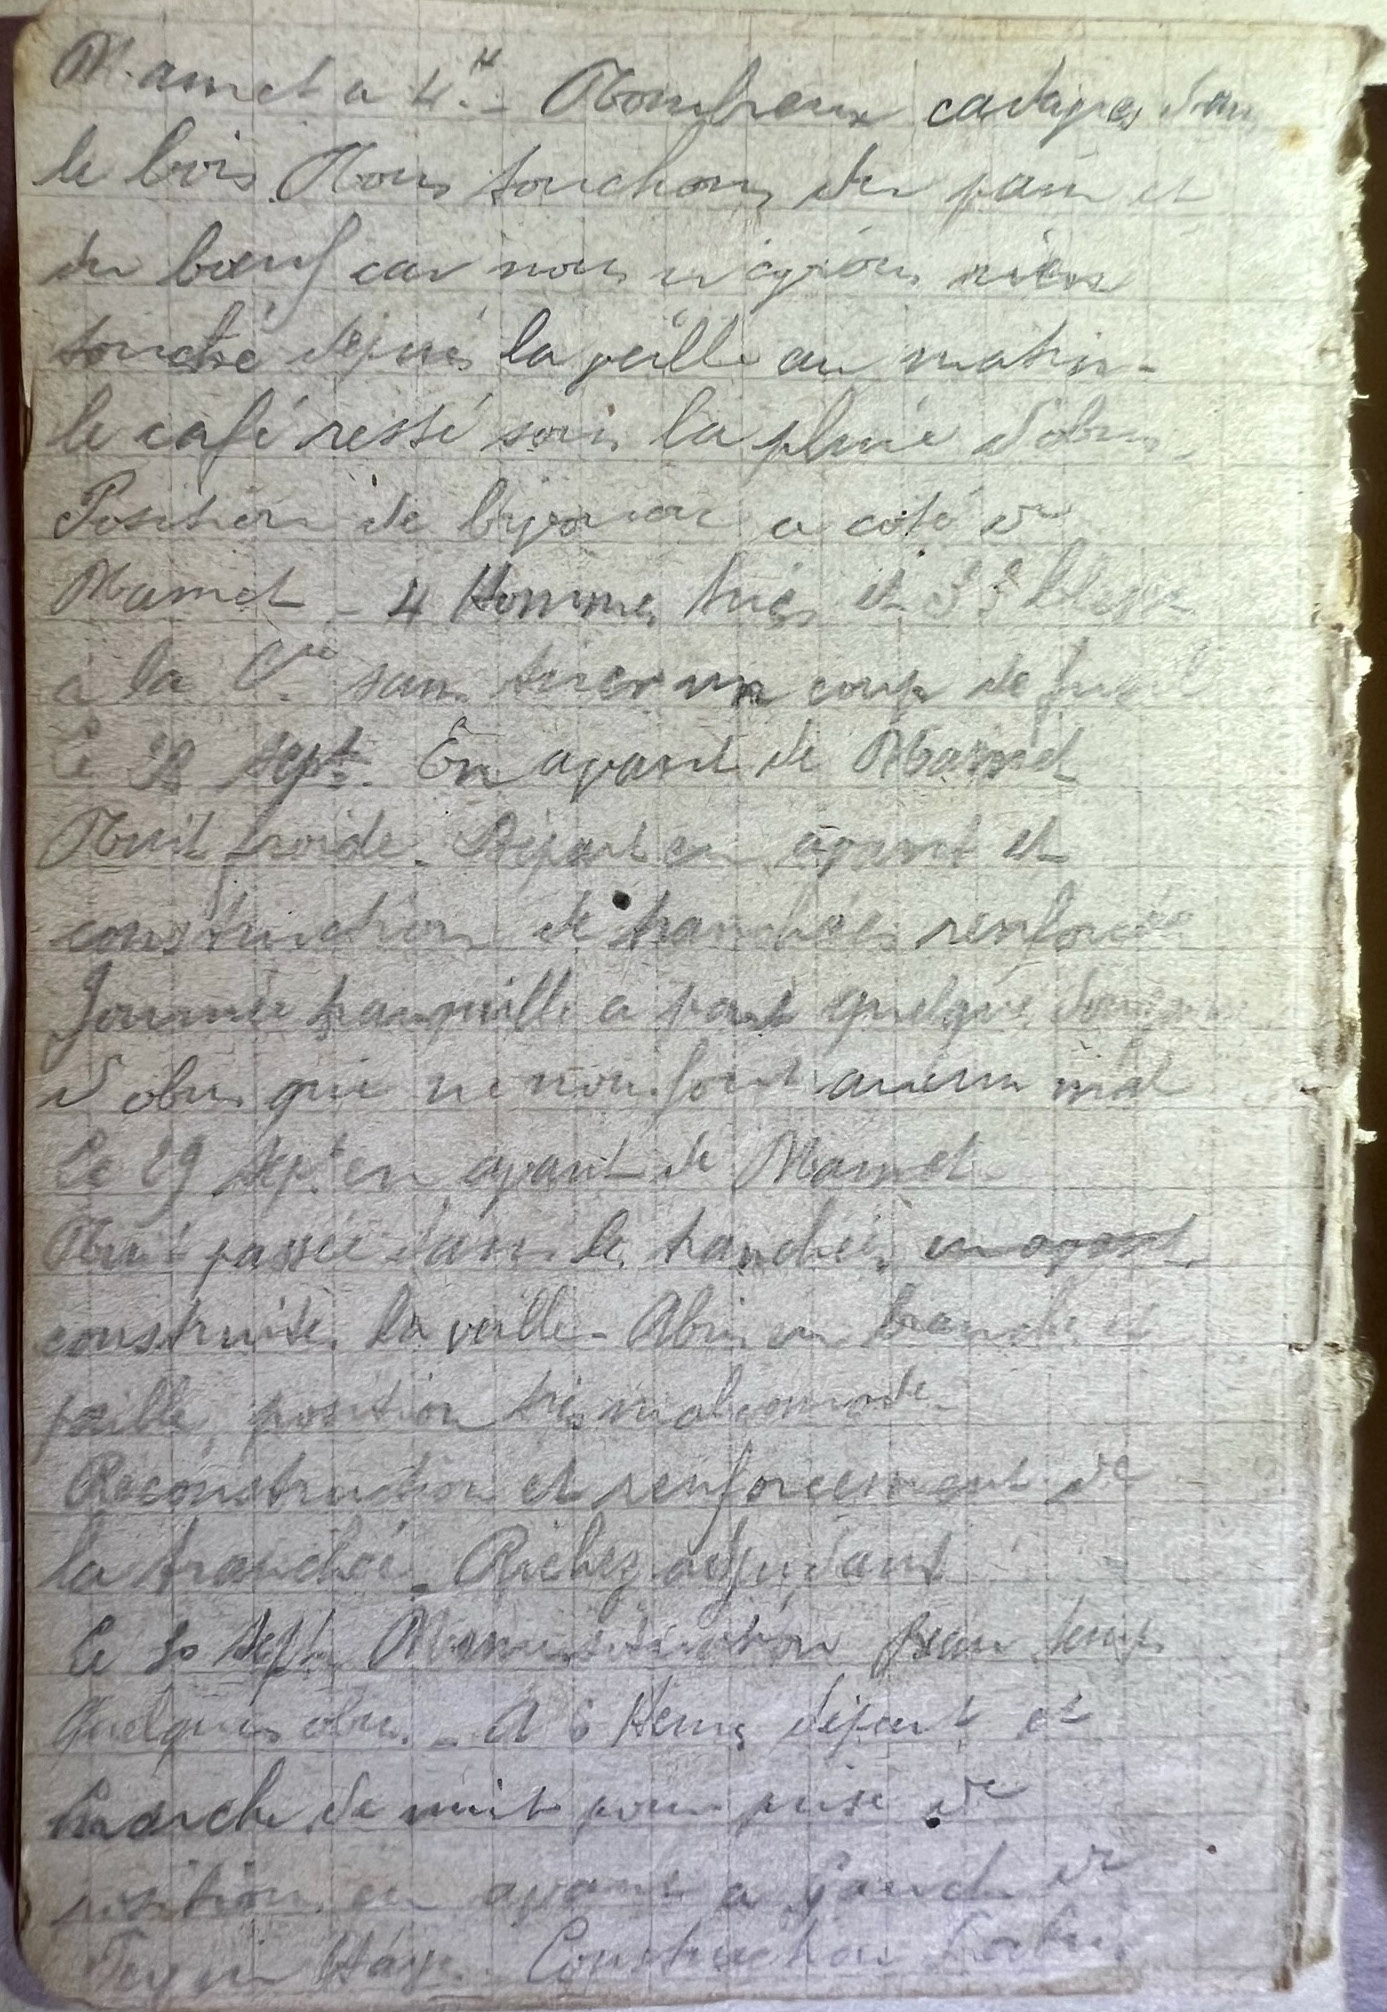 Mamet a 4H. - Nombreux cadavres dans
le bois. Nous touchons du pain et
du bœuf car nous n'avions rien
touché depuis la veille au matin -
le café resté sous la pluie d'obus.
Position de bivouac a coté de
Mamet - 4 Hommes tués et 33 blessés
a la Cie sans tirer un coup de fusil
Le 28 sept. En avant de Mamet
Nuit froide. Départ en avant et
construction de tranchées renforcées
Journée tranquille a part quelques
d'obus qui ne nous font aucun mal
Le 29 sept en avant de Mamet
Nuit passée dans les tranchées en avant
construites la veille - Abris en branches et
paille, position très malcomode
Reconstruction et renforcement de
la tranchée. Richez adjudant
Le 30 sept. Même situation Beau temps
Quelques obus. - A 6 Heures départ et
marche de nuit pour prise de
position en avant a gauche de
Construction d'abris